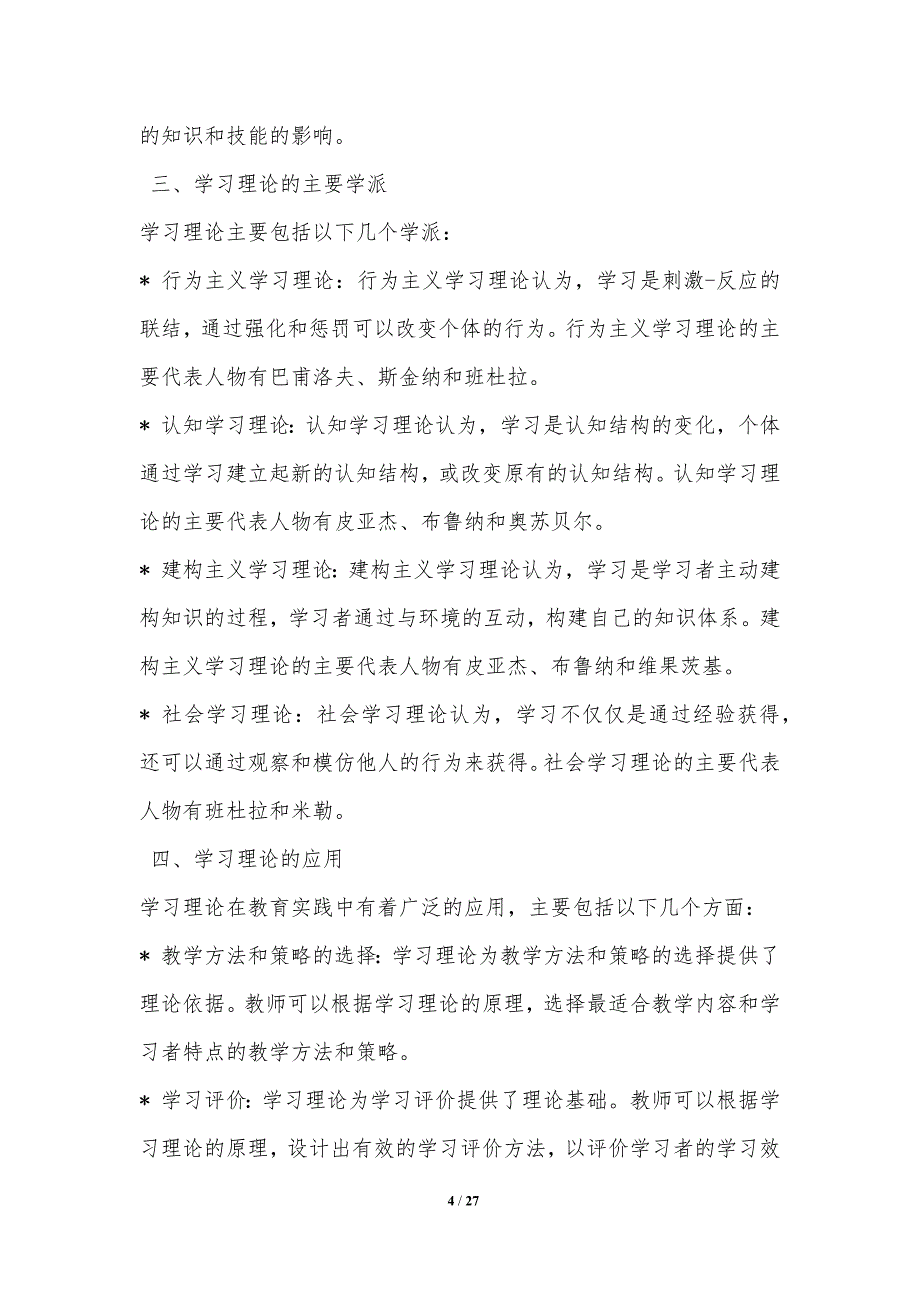 的知识和技能的影响。
三、学习理论的主要学派
学习理论主要包括以下几个学派：
* 行为主义学习理论：行为主义学习理论认为，学习是刺激-反应的
联结，通过强化和惩罚可以改变个体的行为。行为主义学习理论的主
要代表人物有巴甫洛夫、斯金纳和班杜拉。
* 认知学习理论：认知学习理论认为，学习是认知结构的变化，个体
通过学习建立起新的认知结构，或改变原有的认知结构。认知学习理
论的主要代表人物有皮亚杰、布鲁纳和奥苏贝尔。
* 建构主义学习理论：建构主义学习理论认为，学习是学习者主动建
构知识的过程，学习者通过与环境的互动，构建自己的知识体系。建
构主义学习理论的主要代表人物有皮亚杰、布鲁纳和维果茨基。
* 社会学习理论：社会学习理论认为，学习不仅仅是通过经验获得，
还可以通过观察和模仿他人的行为来获得。社会学习理论的主要代表
人物有班杜拉和米勒。
四、学习理论的应用
学习理论在教育实践中有着广泛的应用，主要包括以下几个方面：
* 教学方法和策略的选择：学习理论为教学方法和策略的选择提供了
理论依据。教师可以根据学习理论的原理，选择最适合教学内容和学
习者特点的教学方法和策略。
* 学习评价：学习理论为学习评价提供了理论基础。教师可以根据学
习理论的原理，设计出有效的学习评价方法，以评价学习者的学习效
4 / 27